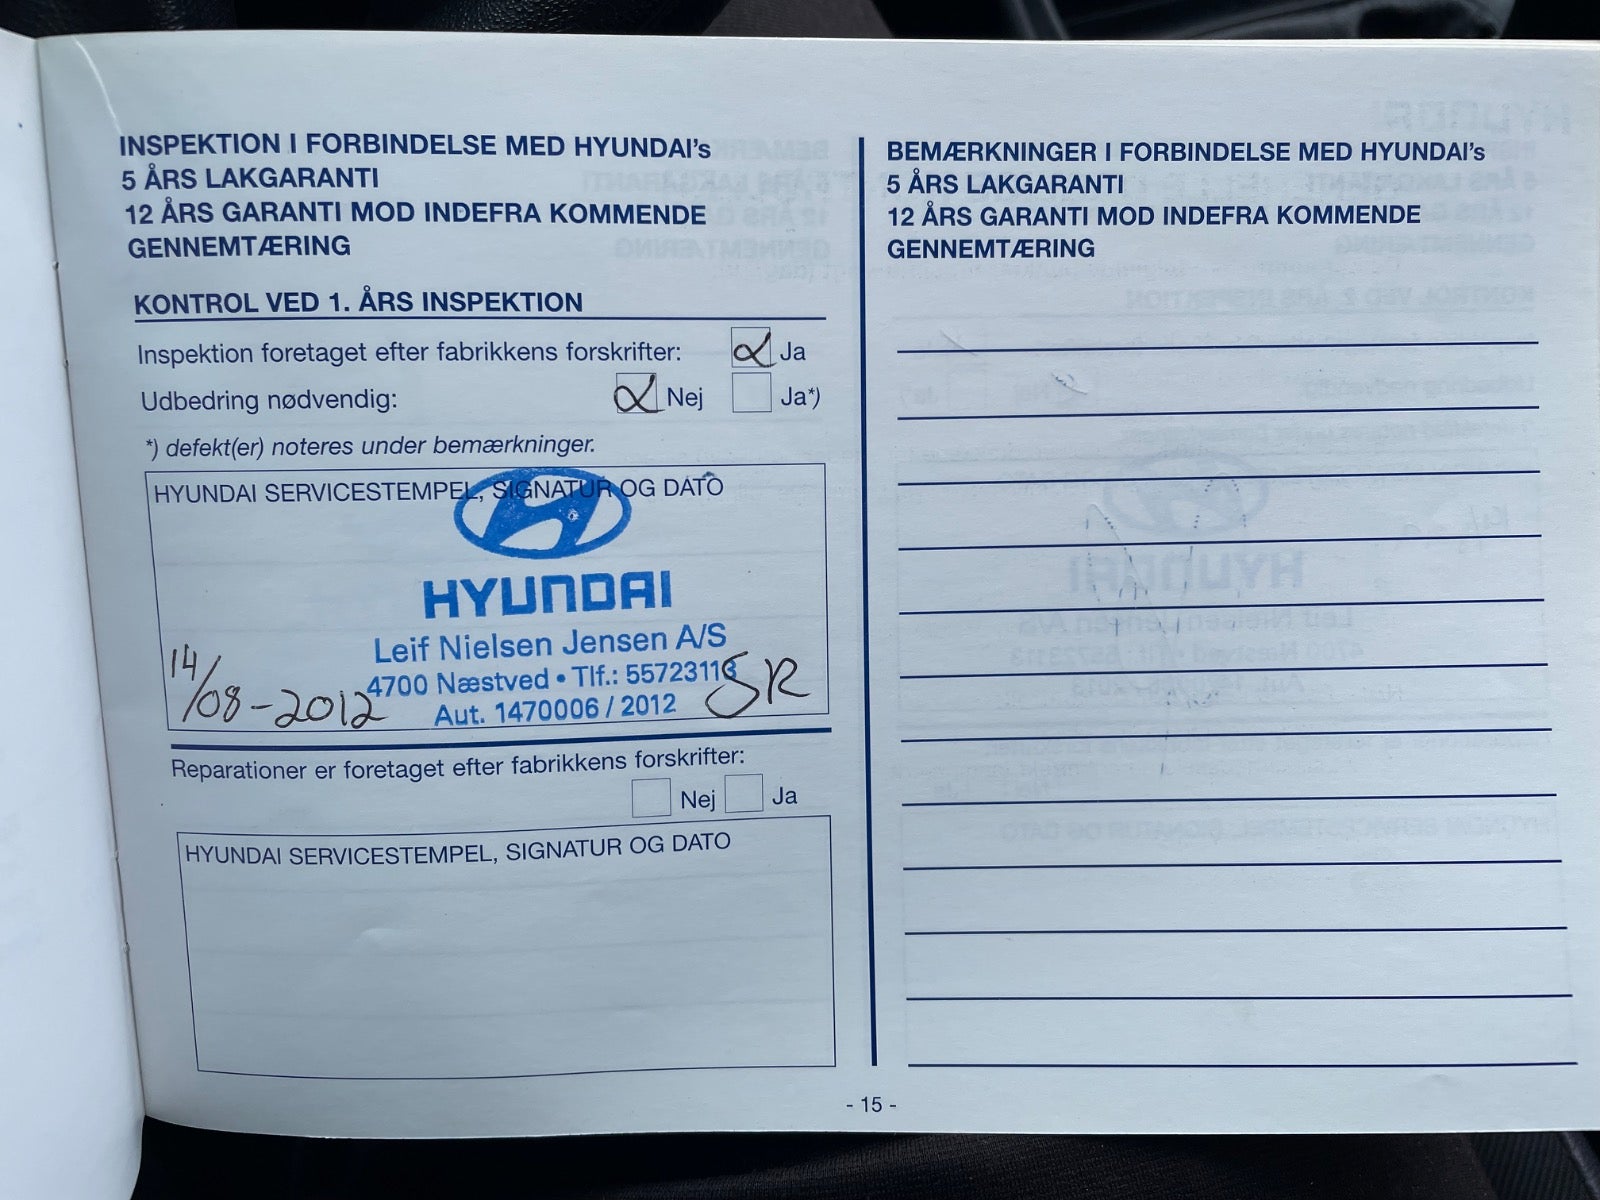 INSPEKTION I FORBINDELSE MED HYUNDAI's
5 ÅRS LAKGARANTI
12 ÅRS GARANTI MOD INDEFRA KOMMENDE
GENNEMTÆRING
KONTROL VED 1. ÅRS INSPEKTION
Inspektion foretaget efter fabrikkens forskrifter: Ja
Udbedring nødvendig: Nej Ja*)
*) defekt(er) noteres under bemærkninger.
HYUNDAI SERVICESTEMPEL, SIGNATUR OG DATO
HYUNDAI
Leif Nielsen Jensen A/S
4700 Næstved • Tlf.: 55723113
Aut. 1470006 / 2012
14/08-2012
SR
Reparationer er foretaget efter fabrikkens forskrifter:
Nej Ja
HYUNDAI SERVICESTEMPEL, SIGNATUR OG DATO
BEMÆRKNINGER I FORBINDELSE MED HYUNDAI's
5 ÅRS LAKGARANTI
12 ÅRS GARANTI MOD INDEFRA KOMMENDE
GENNEMTÆRING
- 15 -